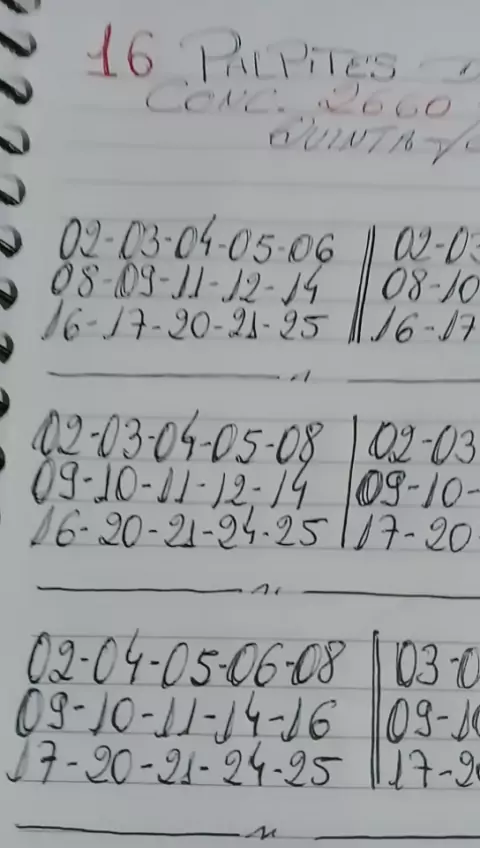 16 PALPITES
CONC. 2660
QUINTA
02-03-04-05-06 02-03
08-09-11-12-14 08-10
16-17-20-21-25 16-17
02-03-04-05-08 02-03
09-10-11-12-14 09-10-
16-20-21-24-25 17-20
02-04-05-06-08 03-0
09-10-11-14-16 09-10
17-20-21-24-25 17-2